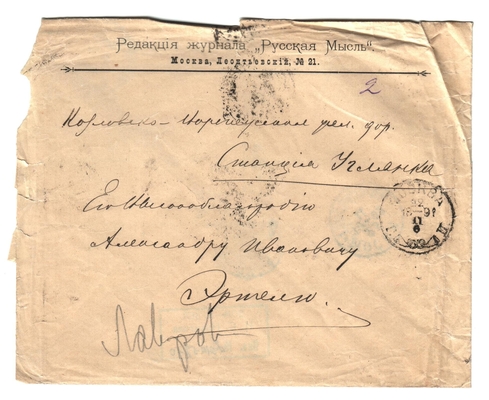 Редакція журнала „Русская Мысль“.
Москва, Леонтьевскій, № 21.
2
Козловско-Воронежская жел. дор.
Станція Углянка
Его Высокоблагородію
Александру Ивановичу
Эртелю.
Лавров
МОСКВА